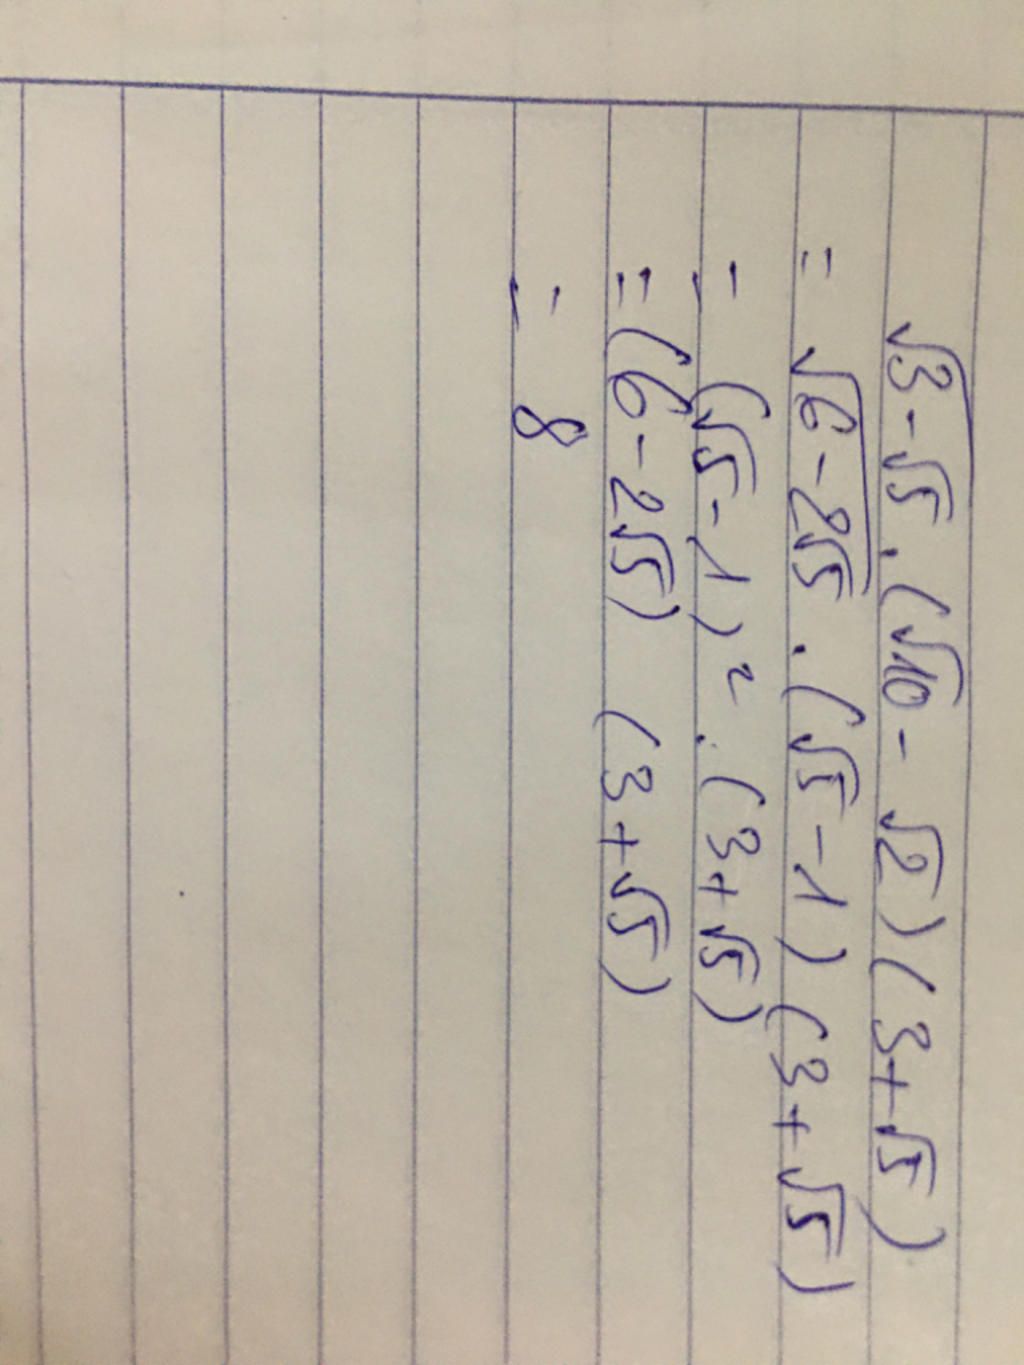 √(3-√5) . (√10 - √2)(3+√5)
= √(6-2√5) . (√5-1)(3+√5)
= (√5-1)² . (3+√5)
= (6-2√5) (3+√5)
= 8